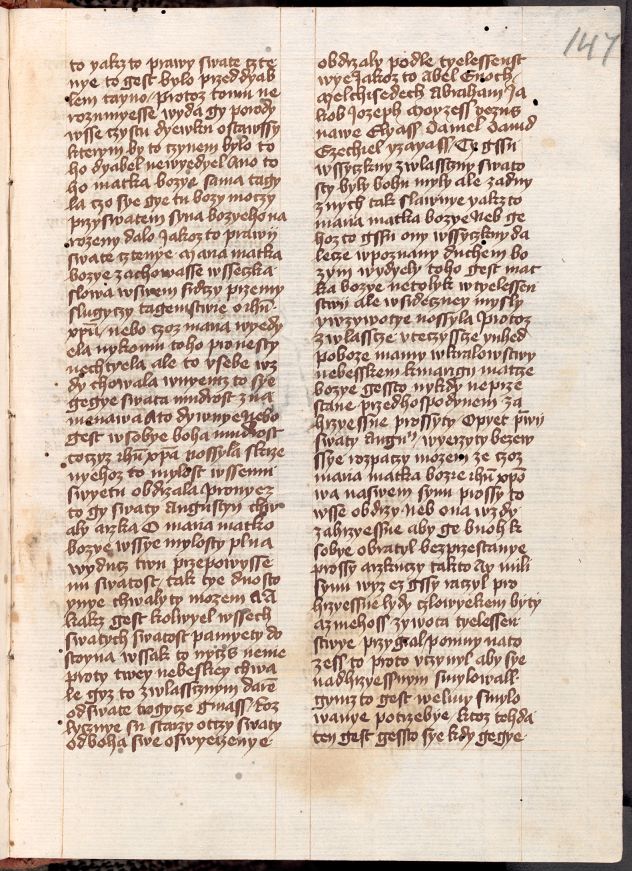 147
to yakz to prawy swate czte
nye to gest bylo przed dyab
lem tayno Protoz tomu ne
rozumyesse wyda gy porody
wsse czystu dyewku ostawssy
kterym by to czynem bylo to
ho dyabel newyedyel Ano to
ho matka bozye sama tagy
la czo sye gye tu bozy moczy
przyswatem syna bozyeho na
rozeny dalo Jakoz to prawij
swate cztenye Maria matka
bozye zachowasse wsseczka
slowa wswem srdczy przemy
slugyczy tagemstwie o ihu
xpu nebo czoz maria wyedy
ela nykomu toho pronesty
nechtyela ale to vsebe wz
dy chowala wnyemz to sye
gegye swata mudrost zna
menawa Ato dywnye Nebo
gest wsobye boha mudrost
toczyz ihu xpa nossyla skrze
nyehoz to mylost wssemu
swyetu obdrzala Pronyez
to gy swaty Augustyn chw
aly arzka O maria matko
bozye wssye mylosty plna
wyducz twu przepowysse
nu swatost tak tye duosto
ynye chwalyty mozem AA
kakz gest kolwyel wssech
swatych swatost pamyety do
stoyna wssak to nychz nenie
proty twey nebeskey chwa
le gyz to zwlasstnym darem
odswate trogycze gmass Roz
lycznye su starzy otczy swaty
odboha swe oswyeczenye
obdrzaly podle tyelessenst
wye Jakoz to Abel Enoch
Melchisedech Abraham Ja
kob Jozeph Moyzess Jozus
nawe Elyass Daniel Dauid
Ezechiel yzayass Ty gssu
wssyczkny zwlasstny swato
sty byly bohu myly ale zadny
znych tak slawnye yakz to
maria matka bozye Neb ge
hoz to gssu ony wssyczkny da
lecze wpoznany duchem bo
zym wydyely toho gest mat
ka bozye netolyk wtyelessen
stwij ale wsrdeczney mysly
ywzywotye nossyla Protoz
zwlasscze vteczyssye yuhed
poboze mamy wkralowstwy
nebesskem kmargij matcze
bozye gessto nykdy neprze
stane przedhospodynem za
hrzyessne prossyty Opyet prwij
swaty Augu wyerzyty bezew
ssye rozpaczy mozem ze czoz
maria matka bozie ihu xpo
wa naswem synu prossy to
wsse obdrzy neb ona wzdy
zahrzyessne aby ge buoh k
sobye obratyl bezprzestanye
prossy arzkuczy takto Ay mili
synu wyz ez gssy raczyl pro
hrzyessne lydy czlowyekem byty
azmehoss zywota tyelessen
stwye przygal pomny nato
zess to proto vczynyl aby sye
nadhrzyessnym smylowal
gymz to gest weliky smylo
wanye potrzebye ktoz tehda
ten gest gessto sye kdy gegye